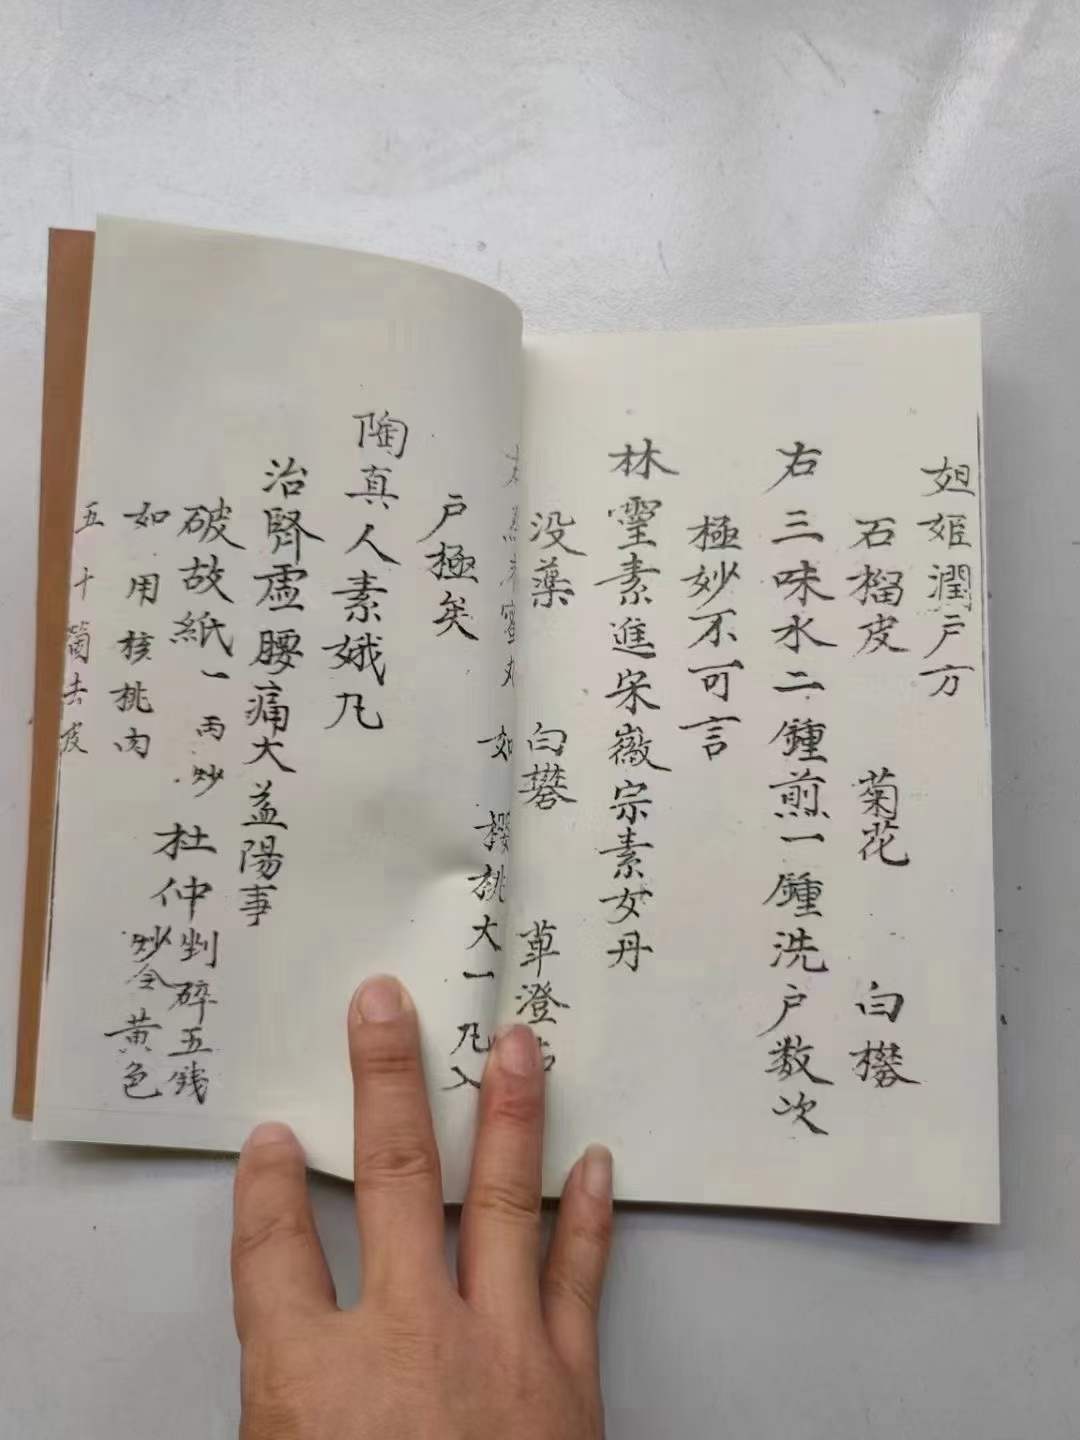 妲姬潤户方
石榴皮 菊花 白礬
右三味水二鍾煎一鍾洗户数次
極妙不可言
林靈素進宋徽宗素女丹
没藥 白礬 蓽澄
右 為末蜜丸如櫻桃大一凡入
户極矣
陶真人素娥凡
治腎虛腰痛大益陽事
破故紙一兩炒 杜仲剉碎五钱
炒令黄色
如用核桃肉
五十箇去皮